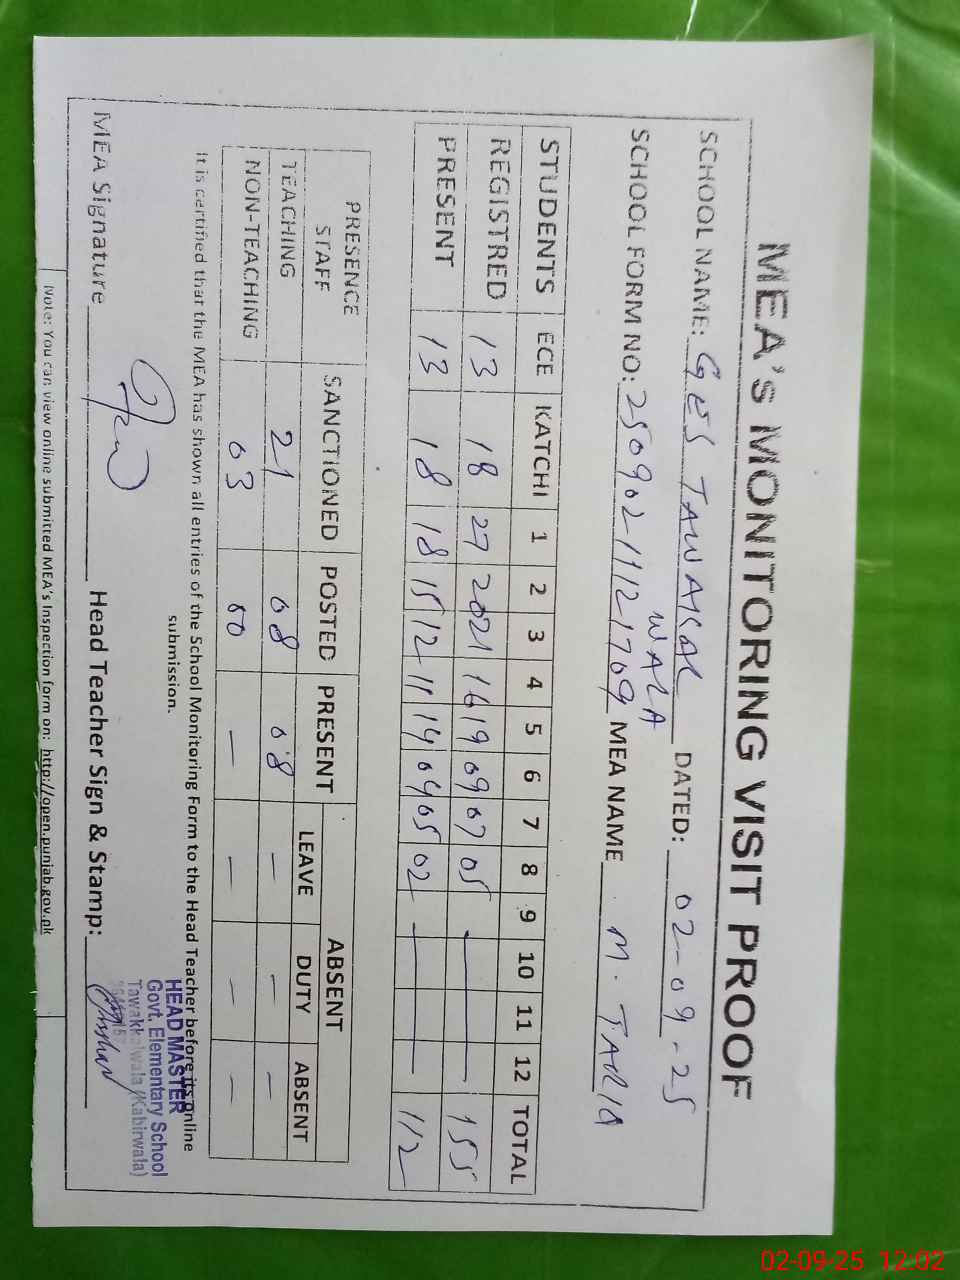 MEA's MONITORING VISIT PROOF
SCHOOL NAME: GES TAWAKAL WALA DATED: 02-09-25
SCHOOL FORM NO: 250902-1121709 MEA NAME M. TARIQ
STUDENTS ECE KATCHI 1 2 3 4 5 6 7 8 9 10 11 12 TOTAL
REGISTRED 13 18 27 20 21 16 19 09 07 05 — — 155
PRESENT 13 18 18 15 12 11 14 04 05 02 — — 112
PRESENCE STAFF SANCTIONED POSTED PRESENT ABSENT
LEAVE DUTY ABSENT
TEACHING 21 08 08 — — —
NON-TEACHING 03 00 — — — —
It is certified that the MEA has shown all entries of the School Monitoring Form to the Head Teacher before its online
submission.
MEA Signature Head Teacher Sign & Stamp:
HEAD MASTER
Govt. Elementary School
Tawakkalwala (Kabirwala)
Note: You can view online submitted MEA's Inspection form on: http://open.punjab.gov.pk
02-09-25 12:02